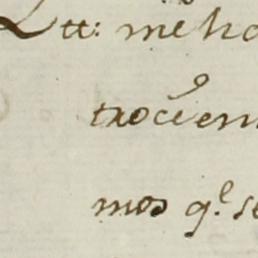 Ltt: mẽ ho
trocien
mos q.l se